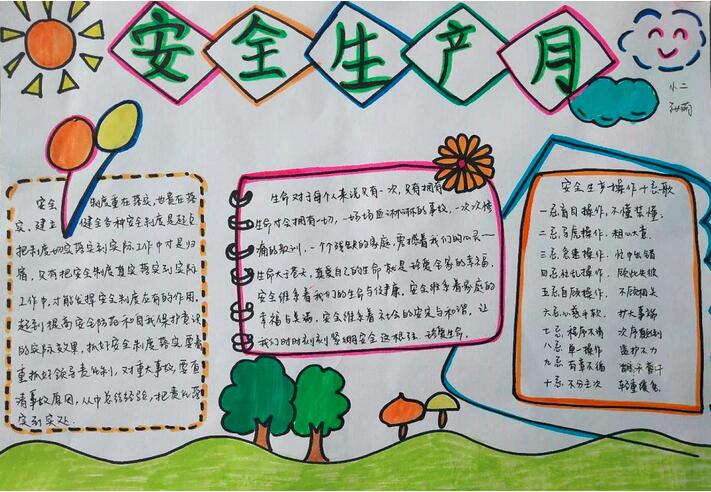 安全生产月
小二
安全 制度重在落实,也贵在落
实,建立 健全各种安全制度是起点
把制度切实落实到实际工作中才是归
宿,只有把安全制度真实落实到实际
工作中,才能发挥安全制度应有的作用,
起到提高安全防范和自我保护意识
的实际效果,抓好安全制度落实要着
重抓好领导责任制,对重大事故要查
清事故原因,从中总结经验,把责任落
实到实处.
生命对于每个人来说只有一次,只有拥有
生命才会拥有一切,一场场血淋淋的事故,一次次惨
痛的教训,一个个残缺的家庭,震撼着我们的心灵—
生命大于天,珍爱自己的生命就是珍爱全家的幸福,
安全维系着我们的生命与健康,安全维系着家庭的
幸福与美满,安全维系着社会的安定与和谐,让
我们时时刻刻紧绷安全这根弦,珍爱生命.
安全生产操作十忌歌
一忌盲目操作,不懂装懂;
二忌马虎操作,粗心大意.
三忌急速操作,忙中出错
四忌忙乱操作,顾此失彼
五忌自顾操作,不顾相关
六忌心急干次,扩大事端
七忌程序不清 次序颠倒
八忌单一操作 监护不力
九忌有章不循
十忌不分主次